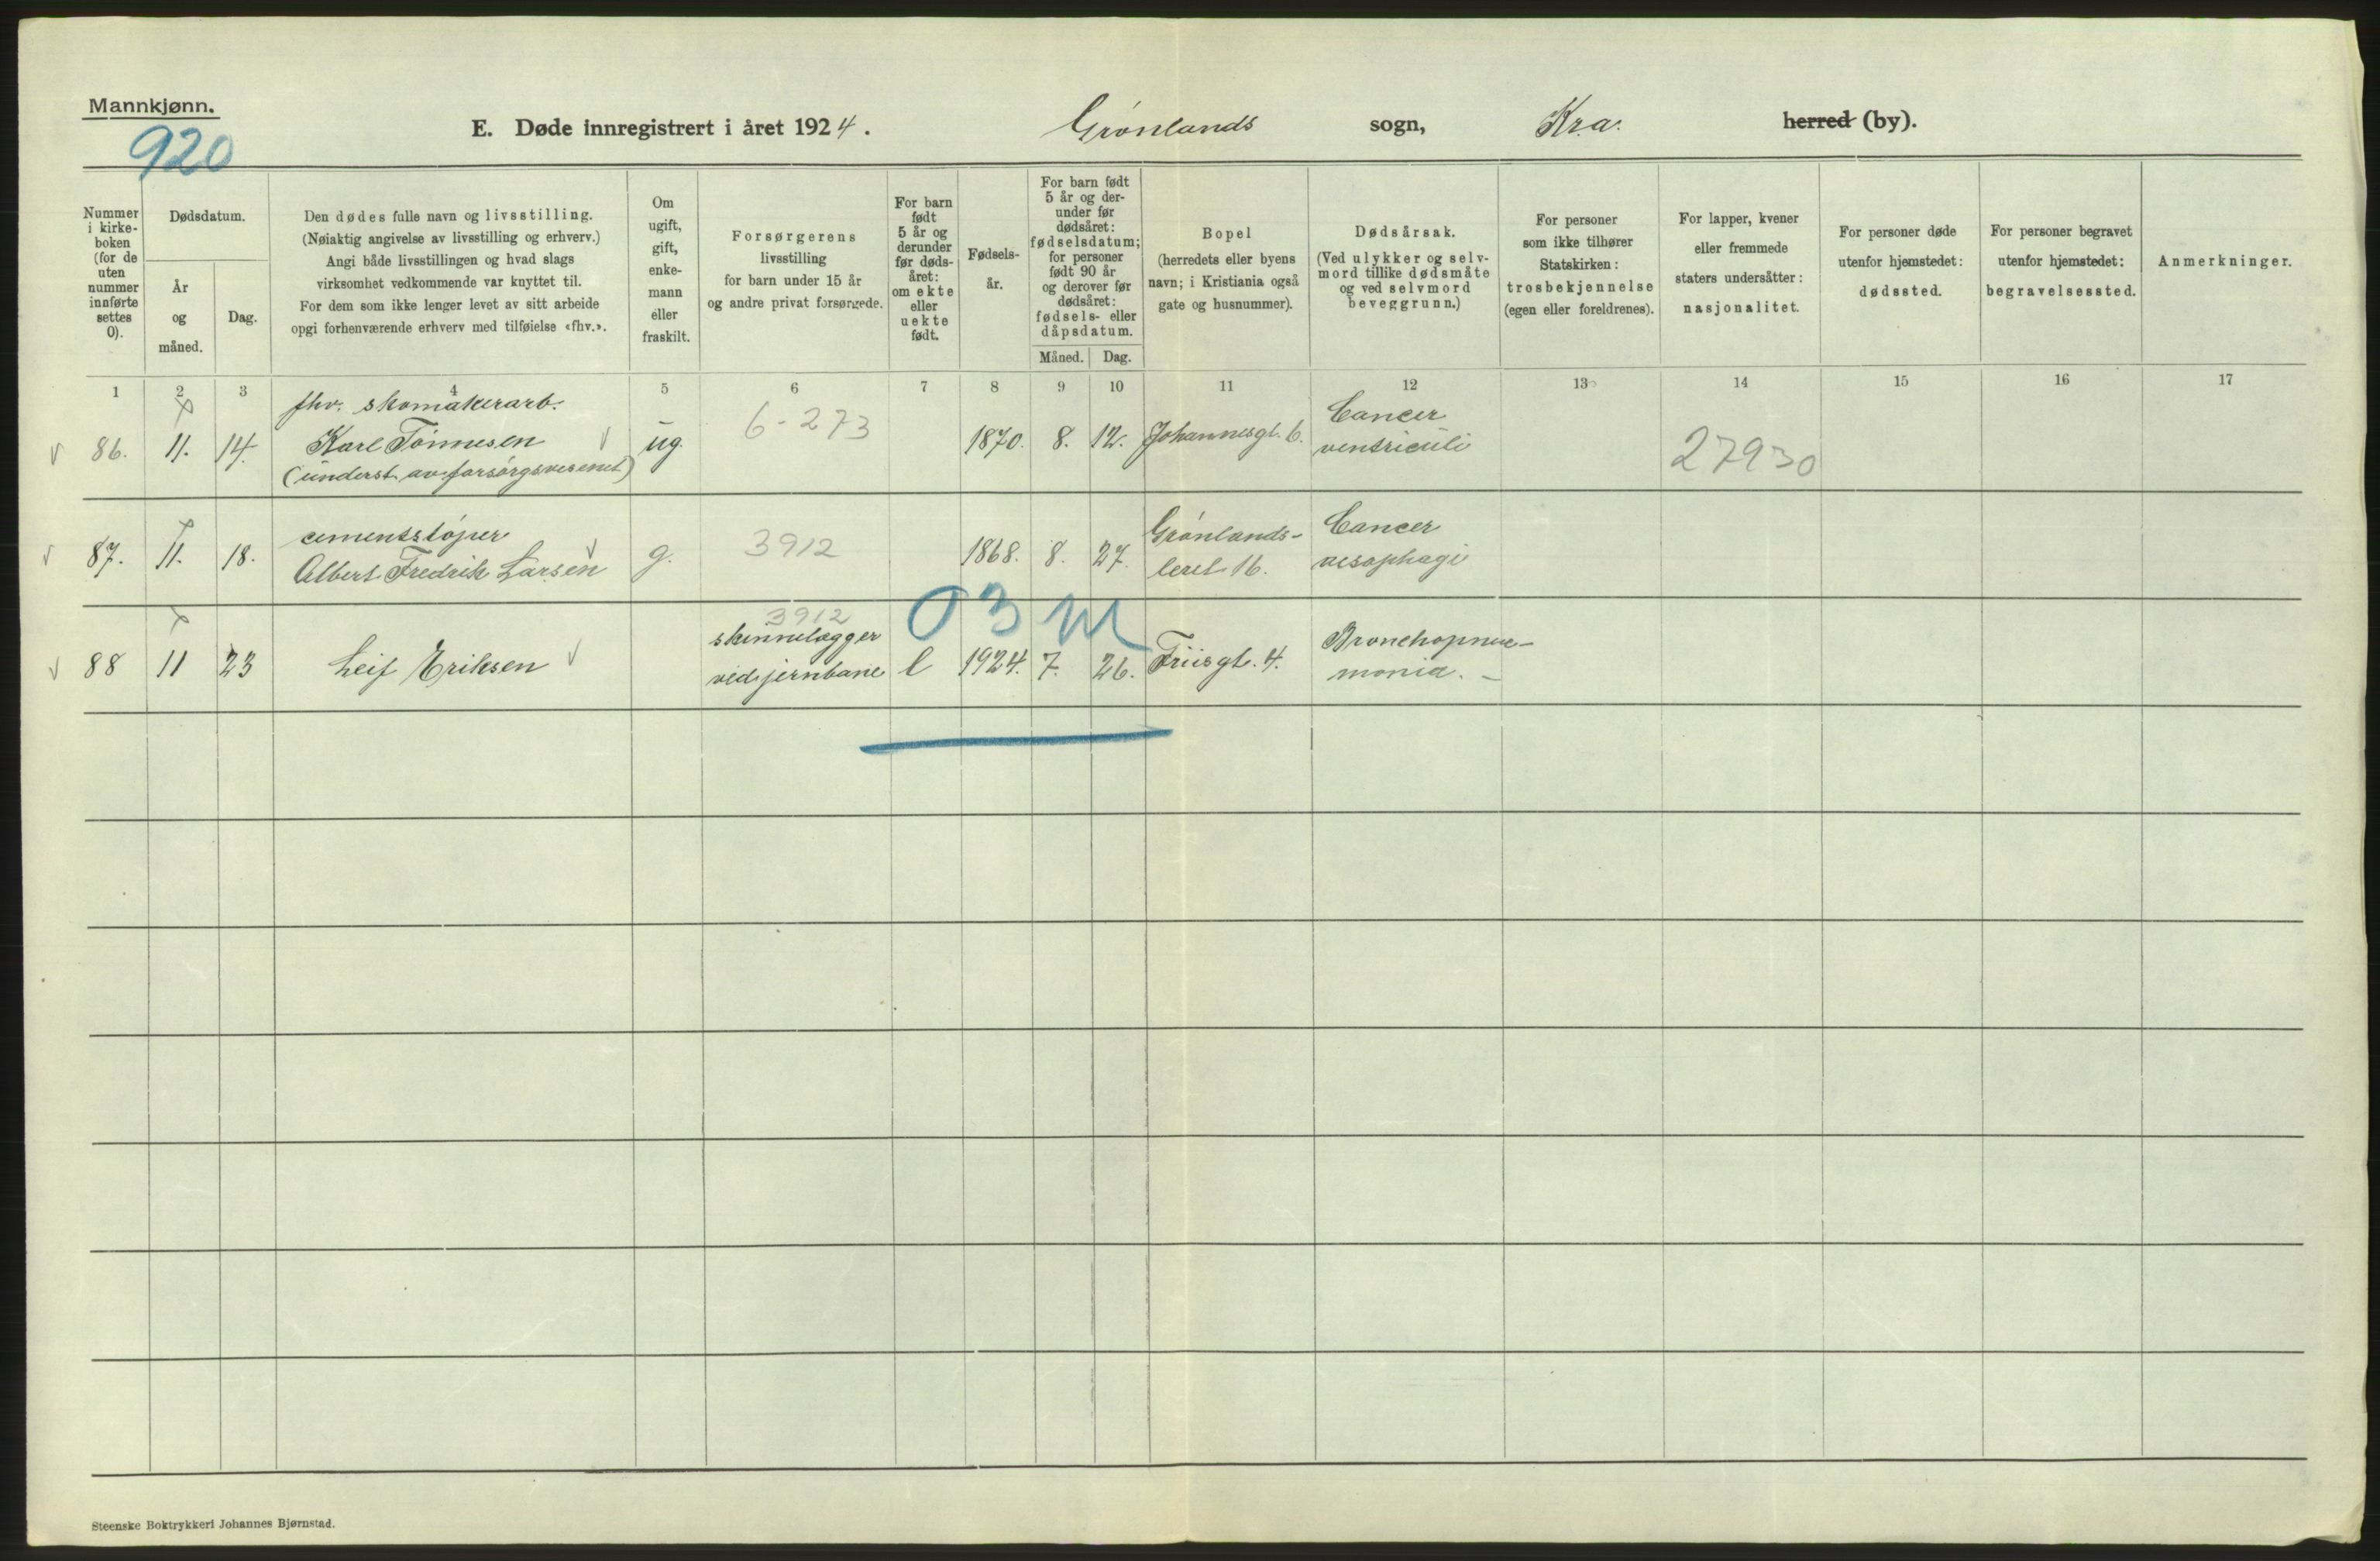 Mannkjønn.
920
E. Døde innregistrert i året 1924. Grønlands sogn, Kr.a. herred (by).
Nummer i kirke- boken (for de uten nummer innførte settes 0).
Dødsdatum.
År og måned.
Dag.
Den dødes fulle navn og livsstilling.
(Nøiaktig angivelse av livsstilling og erhverv.)
Angi både livsstillingen og hvad slags
virksomhet vedkommende var knyttet til.
For dem som ikke lenger levet av sitt arbeide
opgi forhenværende erhverv med tilføielse «fhv.».
Om ugift, gift, enke- mann eller fraskilt.
Forsørgerens
livsstilling
for barn under 15 år
og andre privat forsørgede.
For barn født 5 år og derunder før døds- året: om ekte eller uekte født.
Fødsels- år.
For barn født 5 år og der- under før dødsåret: fødselsdatum; for personer født 90 år og derover før dødsåret: fødsels- eller dåpsdatum.
Måned. Dag.
Bopel
(herredets eller byens
navn; i Kristiania også
gate og husnummer).
Dødsårsak.
(Ved ulykker og selv-
mord tillike dødsmåte
og ved selvmord
beveggrunn.)
For personer
som ikke tilhører
Statskirken:
trosbekjennelse
(egen eller foreldrenes).
For lapper, kvener
eller fremmede
staters undersåtter:
nasjonalitet.
For personer døde
utenfor hjemstedet:
dødssted.
For personer begravet
utenfor hjemstedet:
begravelsessted.
Anmerkninger.
1 2 3 4 5 6 7 8 9 10 11 12 13 14 15 16 17
fhv. skomakerarb. 6-273 Cancer
86. 11. 14. Karl Tønnesen ug. 1870. 8. 12. Johannesgt. 6. ventriculi 27930
(underst. av forsørgsvesenet)
cementstøper 3912 Grønlands- Cancer
87. 11. 18. Albert Fredrik Larsen g. 1868. 8. 27. leret 16. oesophagi
3912 03 M
skinnelægger Bronchopneu-
88 11 23 Leif Eriksen ved jernbane e 1924. 7. 26. Friisgt. 4. monia. –
Steenske Boktrykkeri Johannes Bjørnstad.